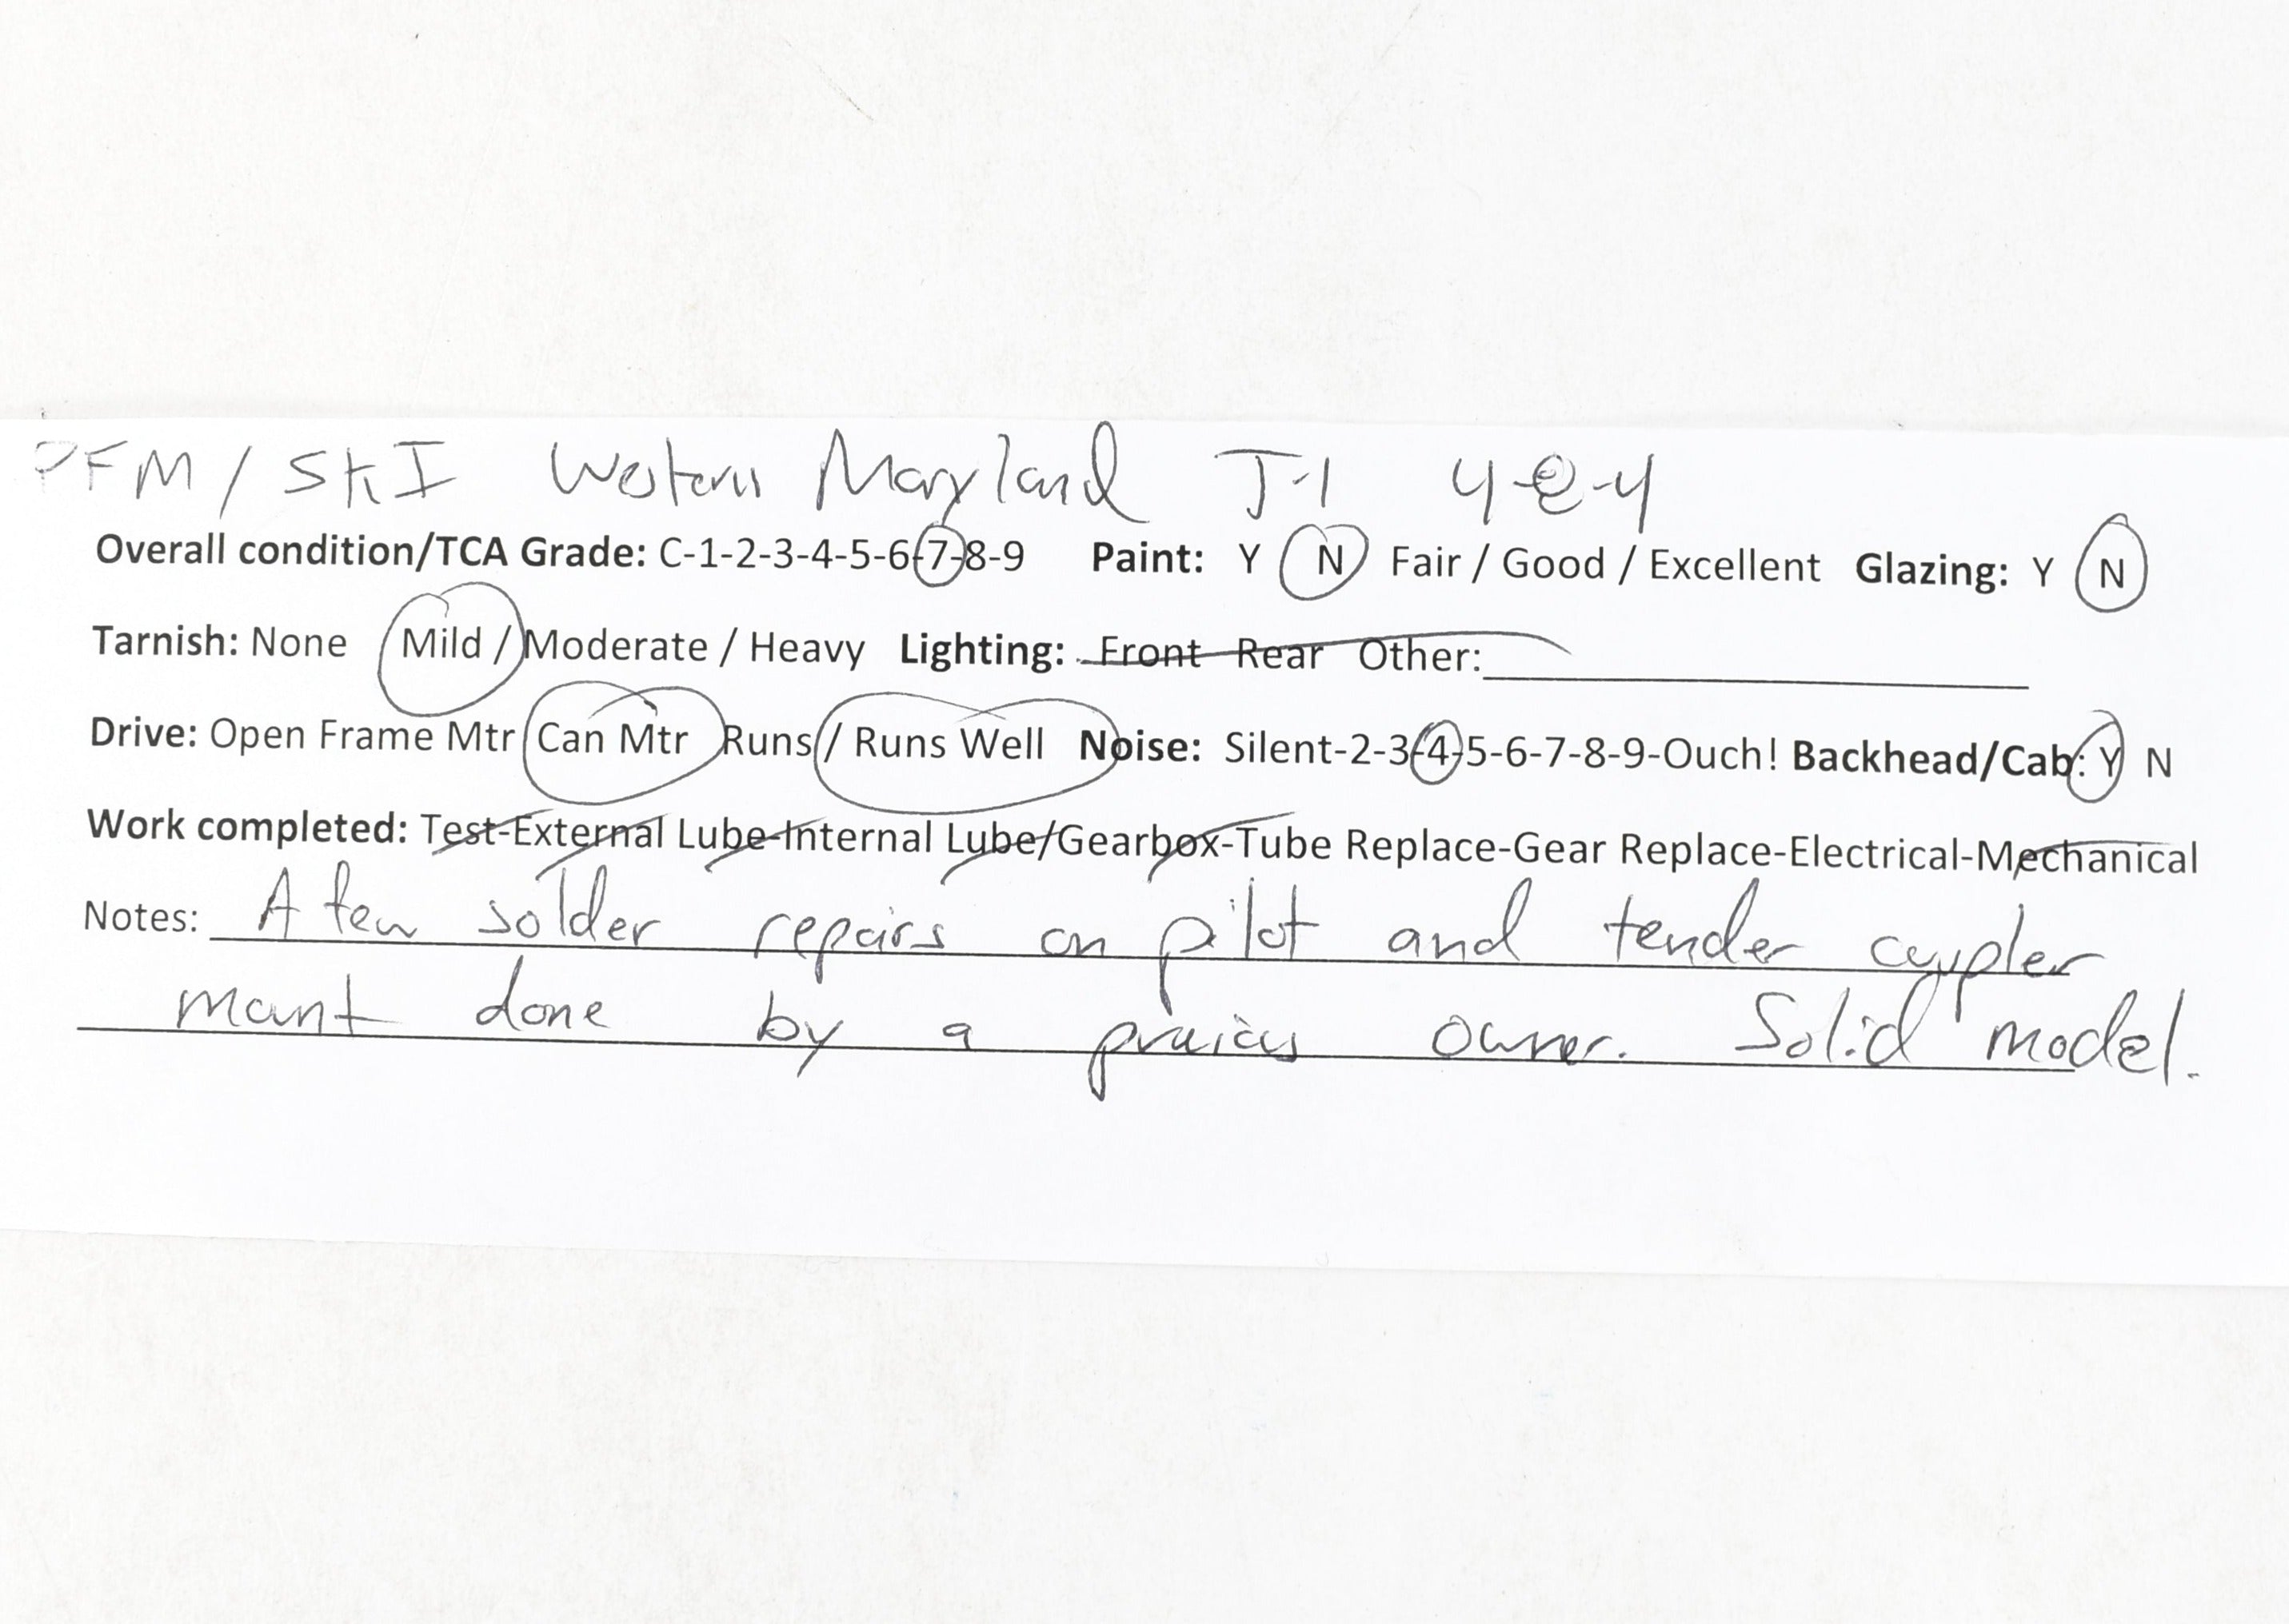 PFM / SKI Western Maryland J-1 4-8-4
Overall condition/TCA Grade: C-1-2-3-4-5-6-7-8-9 Paint: Y N Fair / Good / Excellent Glazing: Y N
Tarnish: None Mild / Moderate / Heavy Lighting: Front Rear Other:
Drive: Open Frame Mtr Can Mtr Runs / Runs Well Noise: Silent-2-3-4-5-6-7-8-9-Ouch! Backhead/Cab: Y N
Work completed: Test-External Lube-Internal Lube/Gearbox-Tube Replace-Gear Replace-Electrical-Mechanical
Notes: A few solder repairs on pilot and tender coupler
mount done by a previous owner. Solid model.